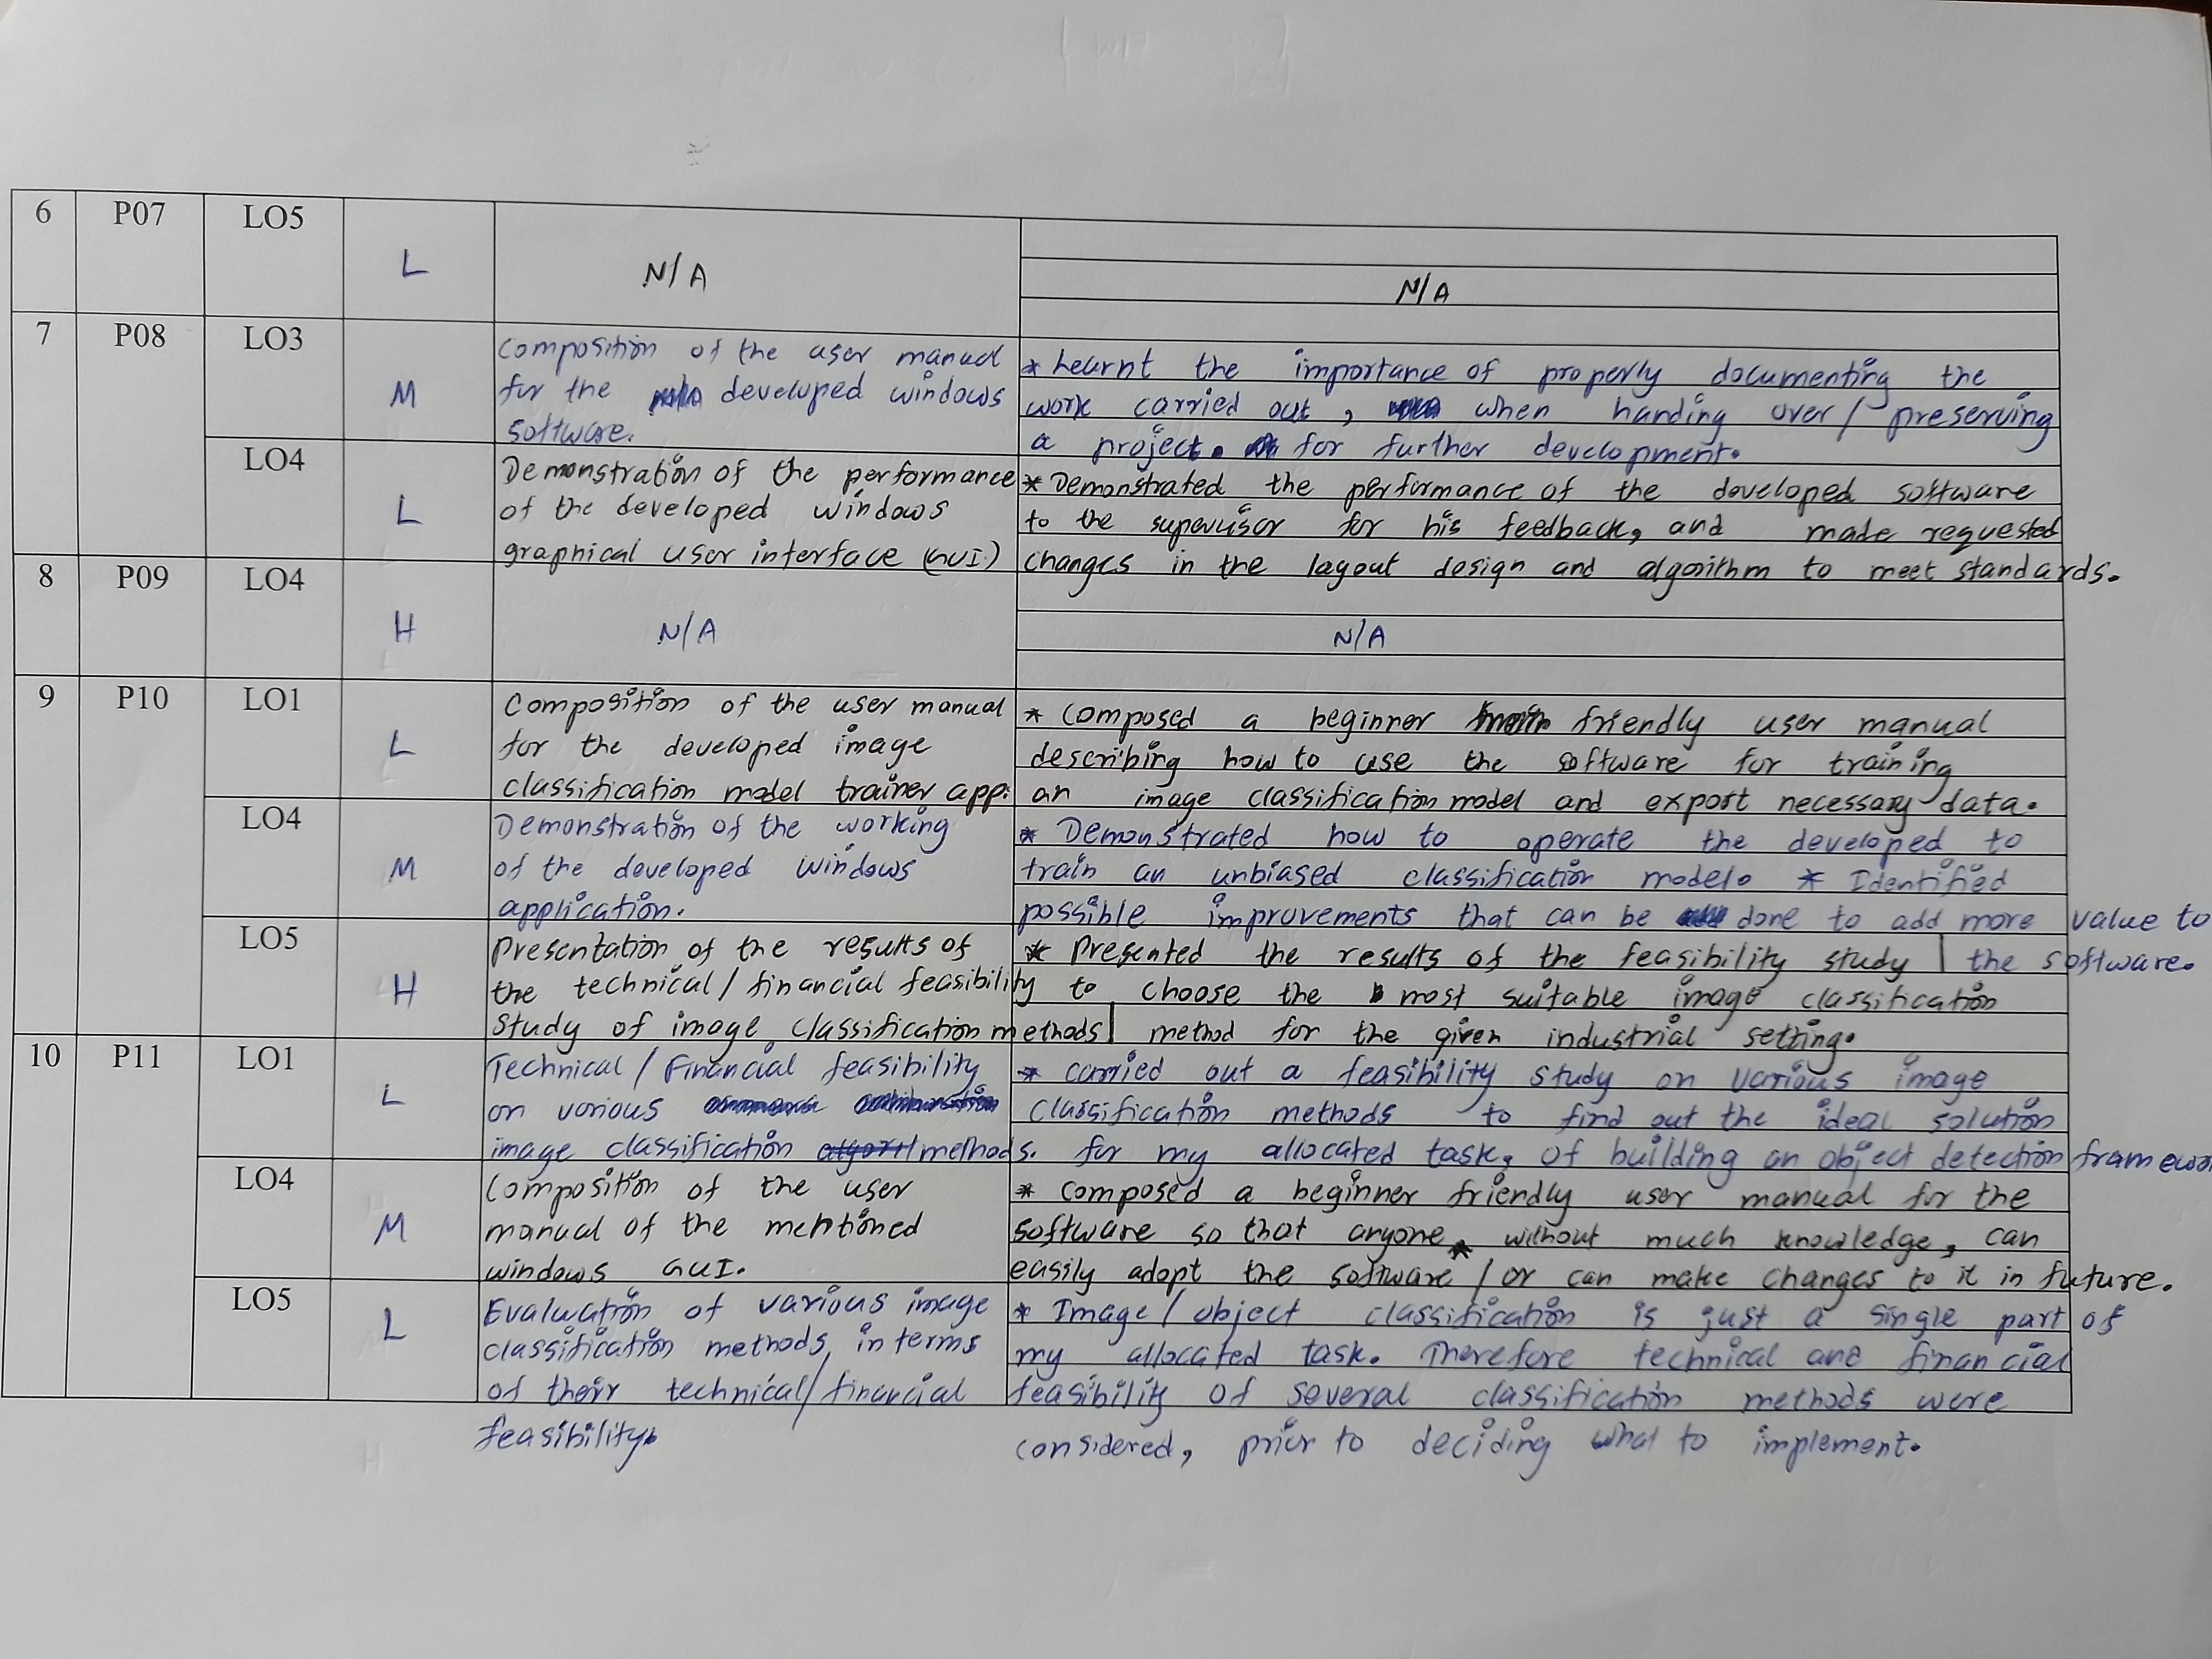 6 P07 LO5 L N/A N/A
7 P08 LO3 M
Composition of the user manual
for the developed windows
software.
* Learnt the importance of properly documenting the
work carried out, when handing over/ presenting
a project for further development.
LO4 L
Demonstration of the performance
of the developed windows
graphical user interface (GUI)
* Demonstrated the performance of the developed software
to the supervisor for his feedback, and made requested
changes in the layout design and algorithm to meet standards.
8 P09 LO4 H N/A N/A
9 P10 LO1 L
Composition of the user manual
for the developed image
classification model trainer app.
* Composed a beginner friendly user manual
describing how to use the software for training
an image classification model and export necessary data.
LO4 M
Demonstration of the working
of the developed windows
application.
* Demonstrated how to operate the developed to
train an unbiased classification model. * Identified
possible improvements that can be done to add more value to
the software.
LO5 H
Presentation of the results of
the technical/financial feasibility
study of image classification methods
* Presented the results of the feasibility study
to choose the most suitable image classification
method for the given industrial setting.
10 P11 LO1 L
Technical/Financial feasibility
on various
image classification methods.
* carried out a feasibility study on various image
classification methods to find out the ideal solution
for my allocated task, of building an object detection
LO4 M
Composition of the user
manual of the mentioned
windows GUI.
* Composed a beginner friendly user manual for the
software so that anyone without much knowledge, can
easily adopt the software / or can make changes to it in future.
LO5 L
Evaluation of various image
classification methods, in terms
of their technical/financial
feasibility.
* Image/object classification is just a single part of
my allocated task. Therefore technical and financial
feasibility of several classification methods were
considered, prior to deciding what to implement.